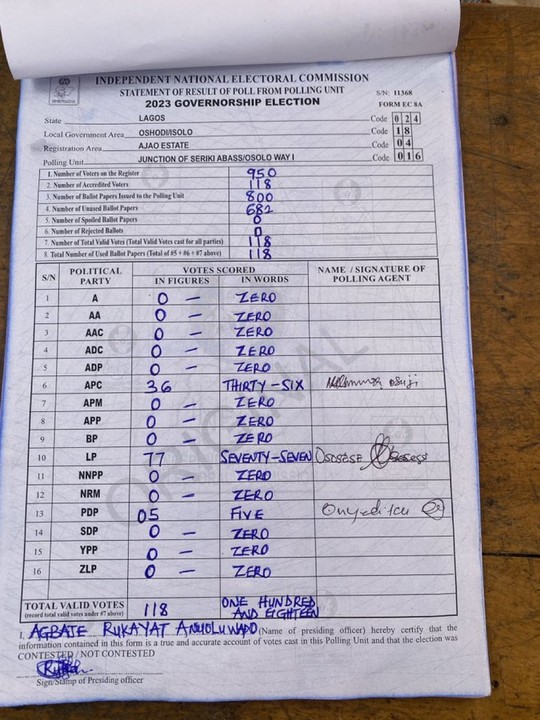 INDEPENDENT NATIONAL ELECTORAL COMMISSION
STATEMENT OF RESULT OF POLL FROM POLLING UNIT
S/N: 11368
2023 GOVERNORSHIP ELECTION
FORM EC 8A
State LAGOS Code 0 2 4
Local Government Area OSHODI/ISOLO Code 1 8
Registration Area AJAO ESTATE Code 0 4
Polling Unit JUNCTION OF SERIKI ABASS/OSOLO WAY I Code 0 1 6
1. Number of Voters on the Register 950
2. Number of Accredited Voters 118
3. Number of Ballot Papers Issued to the Polling Unit 800
4. Number of Unused Ballot Papers 682
5. Number of Spoiled Ballot Papers 0
6. Number of Rejected Ballots 0
7. Number of Total Valid Votes (Total Valid Votes cast for all parties) 118
8. Total Number of Used Ballot Papers (Total of #5 + #6 + #7 above) 118
S/N POLITICAL PARTY VOTES SCORED NAME / SIGNATURE OF POLLING AGENT
IN FIGURES IN WORDS
1 A 0 — ZERO
2 AA 0 — ZERO
3 AAC 0 — ZERO
4 ADC 0 — ZERO
5 ADP 0 — ZERO
6 APC 36 THIRTY-SIX
7 APM 0 — ZERO
8 APP 0 — ZERO
9 BP 0 — ZERO
10 LP 77 SEVENTY-SEVEN
11 NNPP 0 — ZERO
12 NRM 0 — ZERO
13 PDP 05 FIVE
14 SDP 0 — ZERO
15 YPP 0 — ZERO
16 ZLP 0 — ZERO
TOTAL VALID VOTES 118 ONE HUNDRED AND EIGHTEEN
(record total valid votes under #7 above)
I, AGBATE RUKAYAT (Name of presiding officer) hereby certify that the
information contained in this form is a true and accurate account of votes cast in this Polling Unit and that the election was
CONTESTED / NOT CONTESTED
Sign/Stamp of Presiding officer
ORIGINAL